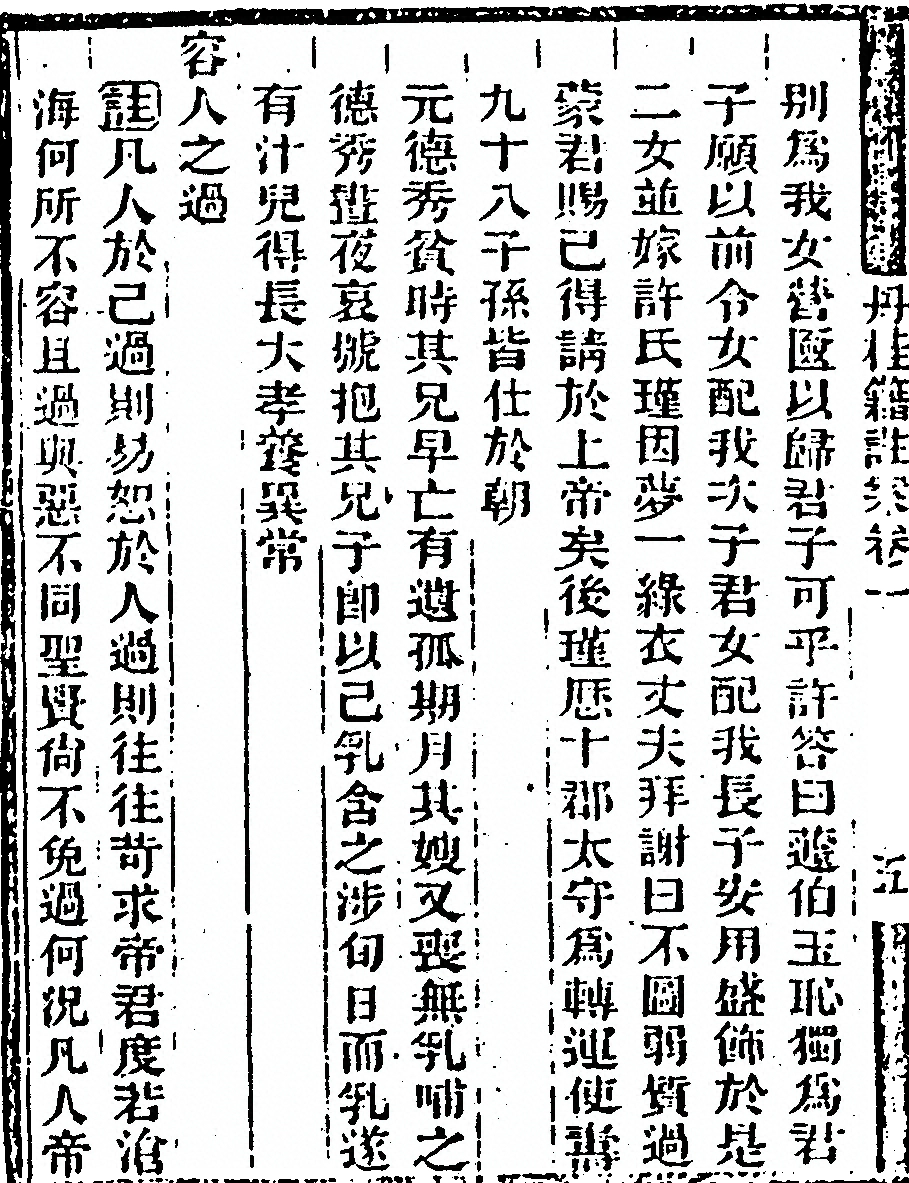 丹桂籍註案卷一
別為我女營匳以歸君子可乎許答曰蘧伯玉恥獨為君
子願以前令女配我次子君女配我長子安用盛飾於是
二女並嫁許氏瑾因夢一綠衣丈夫拜謝曰不圖弱質過
蒙君賜已得請於上帝矣後瑾歷十郡太守為轉運使壽
九十八子孫皆仕於朝
元德秀貧時其兄早亡有遺孤期月其嫂又喪無乳哺之
德秀晝夜哀號抱其兄子即以己乳含之涉旬日而乳遂
有汁兒得長大孝養異常
容人之過
註凡人於己過則易恕於人過則往往苛求帝君度若滄
海何所不容且過與惡不同聖賢尚不免過何況凡人帝